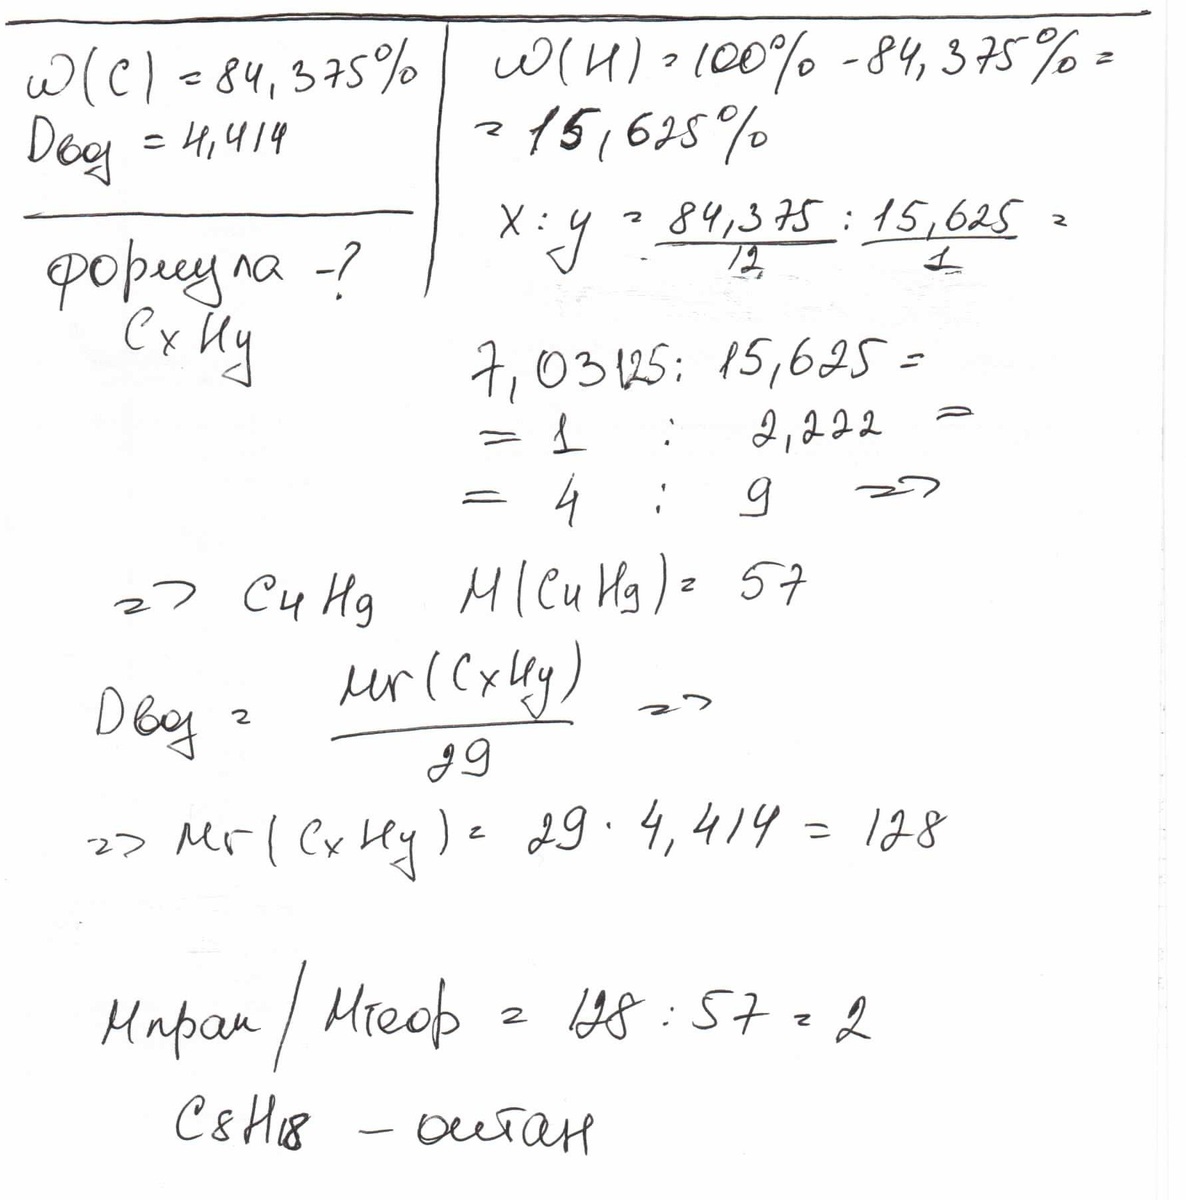 W(C) = 84,375%
Dвоз = 4,414
формула -?
CxHy
W(H) = 100% - 84,375% =
= 15,625%
x : y = 84,375/12 : 15,625/1 =
7,03125 : 15,625 =
= 1 : 2,222 =
= 4 : 9 =>
=> C4H9 M(C4H9) = 57
Dвоз = Mr(CxHy)/29 =>
=> Mr(CxHy) = 29 · 4,414 = 128
Mпрак / Mтеор = 128 : 57 = 2
C8H18 - октан